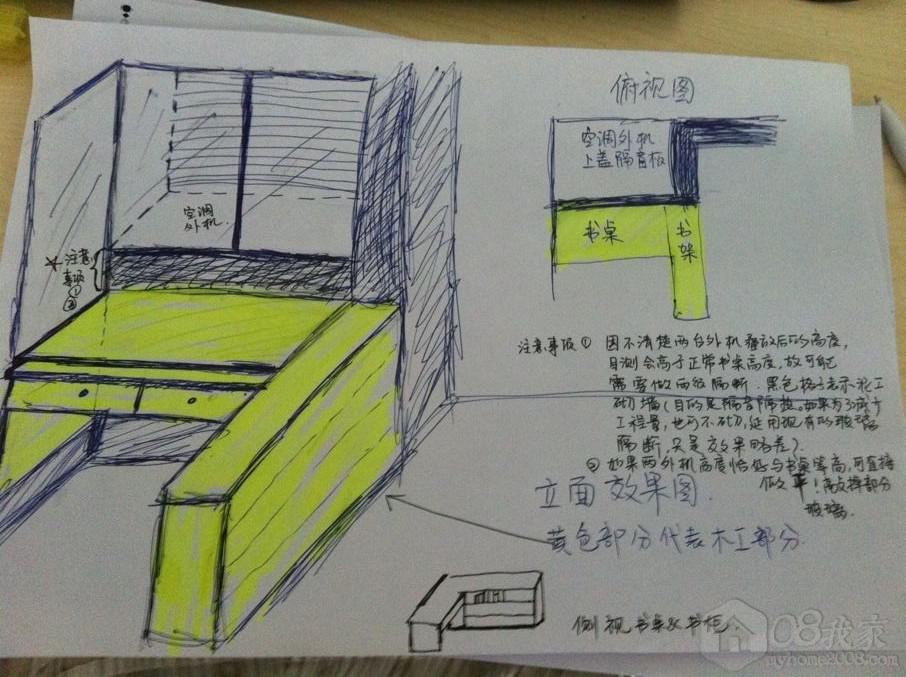 俯视图
空调外机
上盖隔音板
书桌
书架
空调
外机
注意
事项
①
②
注意事项① 因不清楚两台外机叠放后的高度,
目测会高于正常书桌高度,故可能
需要做两级隔断.黑色格子表示泥工
砌墙(目的是隔音隔热,如果为了减少
工程量,也可不砌,延用现有的玻璃
隔断,只是效果略差).
② 如果两外机高度恰好与书桌等高,可直接
做平!
玻璃.
立面效果图.
黄色部分代表木工部分.
侧视书桌&书柜.
08我家
myhome2008.com